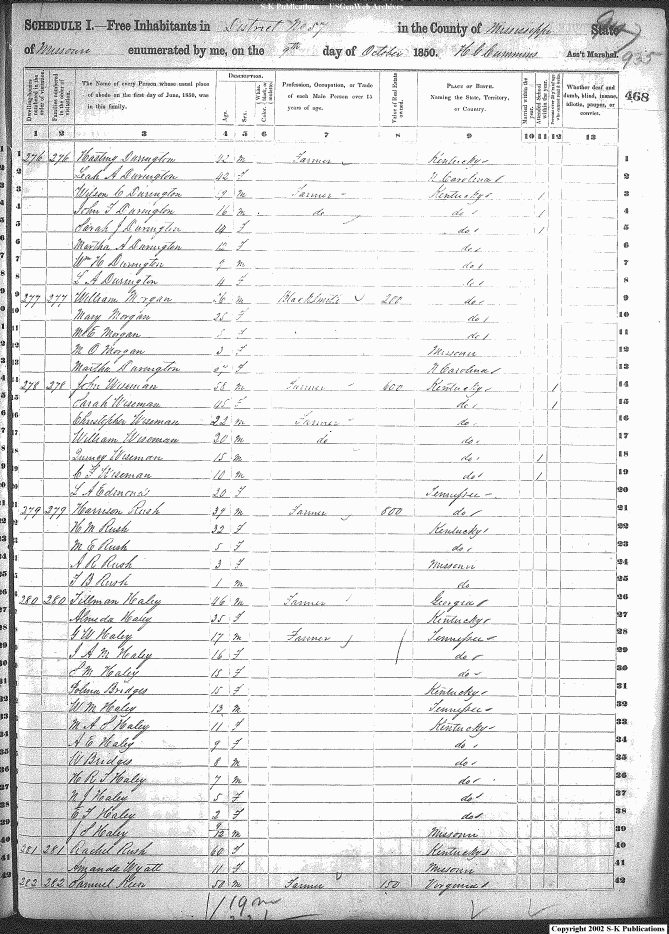 S-K Publications | USGenWeb Archives
SCHEDULE I.—Free Inhabitants in District No 87 in the County of Mississippi State
of Missouri enumerated by me, on the 9th day of October 1850. H C Cummins Ass't Marshal.
935
468
Dwelling-houses numbered in the order of visitation.
Families numbered in the order of visitation.
The Name of every Person whose usual place of abode on the first day of June, 1850, was in this family.
DESCRIPTION.
Age.
Sex.
Color.
Profession, Occupation, or Trade of each Male Person over 15 years of age.
Value of Real Estate owned.
PLACE OF BIRTH. Naming the State, Territory, or Country.
Married within the year.
Attended School within the year.
Whether deaf and dumb, blind, insane, idiotic, pauper, or convict.
1 2 3 4 5 6 7 8 9 10 11 12 13
1 276 276 Durrington 42 m Farmer Kentucky 1
2 Leah A Durrington 42 F N Carolina 2
3 Wilson C Durrington m Farmer Kentucky 1 3
4 John T Durrington 16 m do do 1 4
5 Sarah J Durrington 14 F do 1 5
6 Martha A Durrington 12 F do 6
7 Wm H Durrington 7 m do 7
8 L A Durrington 4 F do 8
9 277 277 William Morgan 26 m Blacksmith 200 do 9
10 Mary Morgan 25 F do 10
11 M E Morgan F do 11
12 M O Morgan 3 F Missouri 12
13 Martha Durrington 67 F N Carolina 13
14 278 278 John Wiseman 58 m Farmer 600 Kentucky 1 14
15 Sarah Wiseman 45 F do 1 15
16 Christopher Wiseman 22 m Farmer do 16
17 William Wiseman 20 m do do 17
18 Quincy Wiseman 15 m do 1 18
19 C F Wiseman 10 m do 1 19
20 L A 20 F Tennessee 20
21 279 279 Harrison Rush 39 m Farmer 800 do 21
22 H M Rush 32 F Kentucky 22
23 M E Rush 5 F do 23
24 A R Rush 3 F Missouri 24
25 T B Rush 1 m do 25
26 280 280 Tillman Haley 46 m Farmer Georgia 26
27 Almeda Haley 35 F Kentucky 27
28 G W Haley 17 m Farmer Tennessee 28
29 I A M Haley 16 F do 29
30 S M Haley 15 F do 30
31 Bridges 15 F Kentucky 31
32 W M Haley 13 m Tennessee 32
33 M A S Haley 11 F Kentucky 33
34 A E Haley 9 F do 34
35 W Bridges 8 m do 35
36 H R S Haley 7 m do 36
37 N J Haley 5 F do 37
38 E T Haley 2 F do 38
39 J S Haley /12 m Missouri 39
40 281 281 Rachel Rush 60 F Kentucky 40
41 Amanda Wyatt 11 F Missouri 41
42 282 282 Samuel 50 m Farmer 150 Virginia 42
19 m
Copyright 2002 S-K Publications